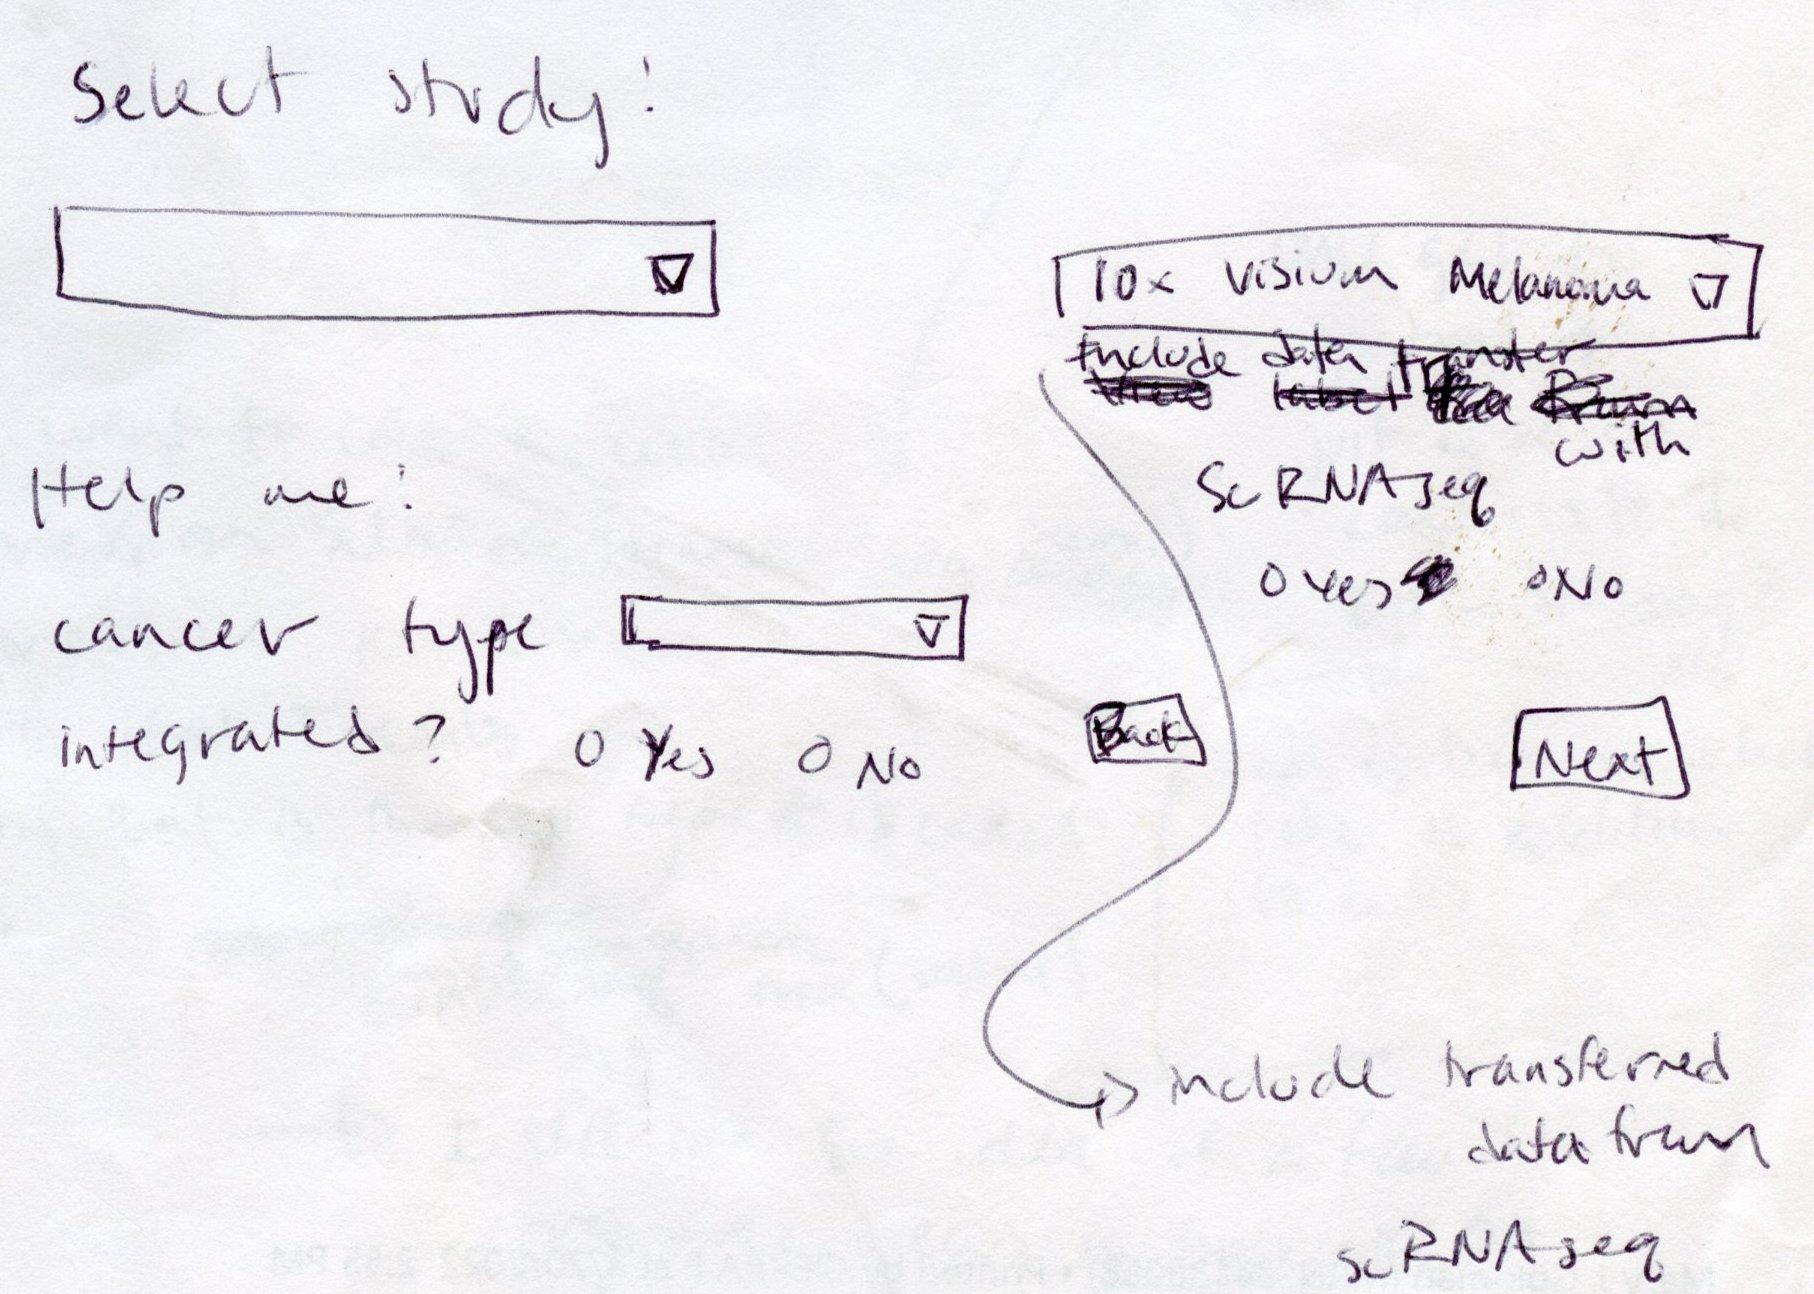 Select study:
Help me:
cancer type
integrated? O Yes O No
10x Visium Melanoma
Include data transfer
View label
with
ScRNAseq
O Yes O No
Back
Next
include transferred
data from
scRNAseq